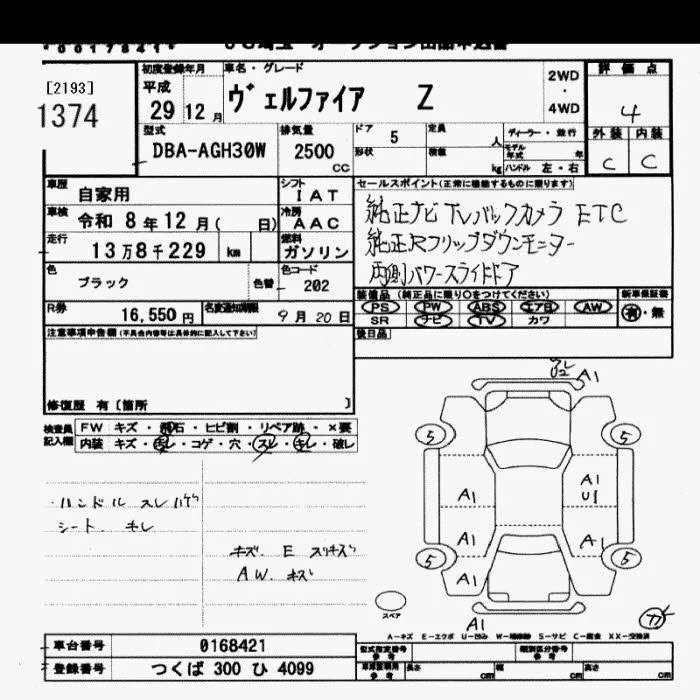 [2193]
1374
初度登録年月
平成
29 12 月
車名・グレード
ヴェルファイア Z
2WD
・
4WD
評価点
4
外装 内装
C C
型式
DBA-AGH30W
排気量
2500
CC
ドア 5
定員
人
形状
積載
kg
ディーラー・並行
モデル年式 年
ハンドル 左・右
車歴
自家用
シフト
I A T
車検
令和 8 年 12 月( 日)
冷房
A A C
走行
13万8千229 km
燃料
ガソリン
色
ブラック
色替
色コード
202
R券
16,550 円
名変通知期限
9 月 20 日
セールスポイント(正常に機能するものに限ります)
純正ナビ TV バックカメラ ETC
純正Rフリップダウンモニター
両側パワースライドドア
装備品 (純正品に限り○をつけてください)
PS PW ABS エアB AW
SR ナビ TV カワ
新車保証書
有・無
後日品
注意事項申告欄(不具合内容等は具体的に記入して下さい)
修復歴 有〔箇所 〕
検査員
記入欄
FW キズ・飛石・ヒビ割・リペア跡・×要
内装 キズ・汚レ・コゲ・穴・スレ・キレ・破レ
・ハンドル スレハゲ
シート、キレ
キズ、E スリキズ
A.W. キズ
A1
5
5
A1
A1
U1
A1
A1
5
A1
5
A1
スペア
A-キズ E-エクボ U-凹み W-補修跡 S-サビ C-腐食 XX-交換済
車台番号
0168421
登録番号
つくば 300 ひ 4099
型式指定番号
参考
類別区分番号
参考
長さ cm
幅 cm
高さ cm